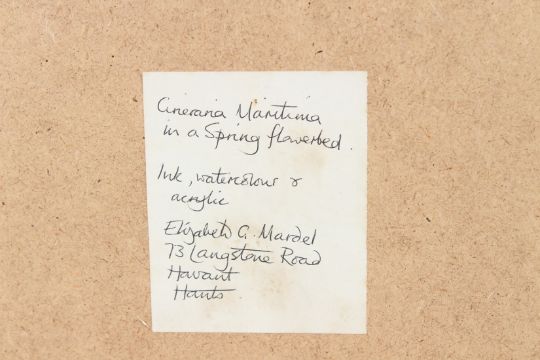 Cineraria Maritima
in a Spring flowerbed.
Ink, watercolour &
acrylic
Elizabeth G. Mardel
73 Langstone Road
Havant
Hants.